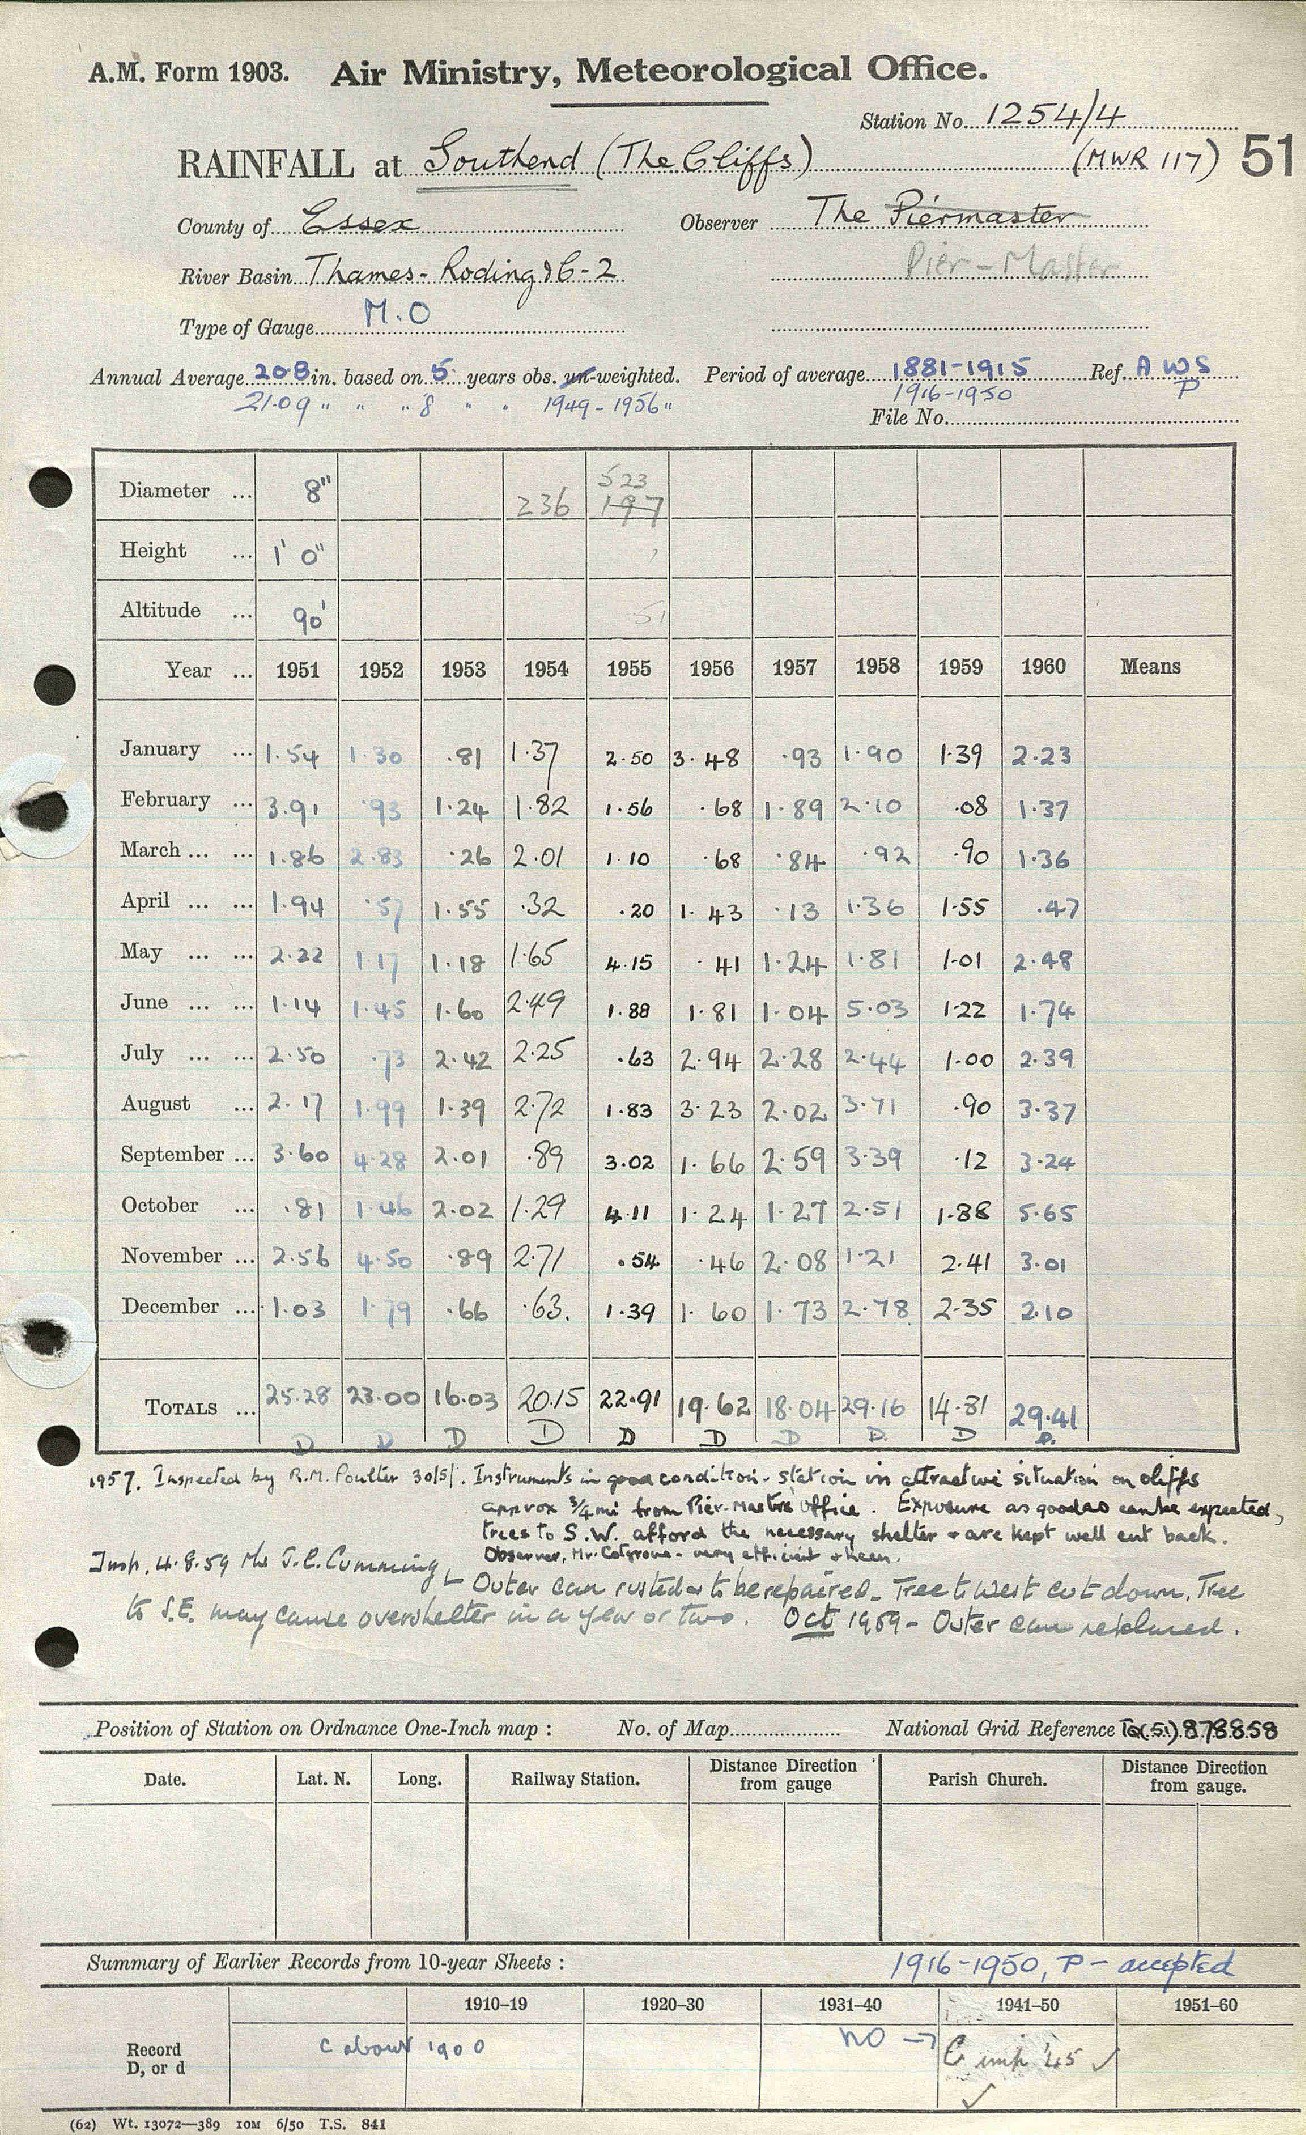 A.M. Form 1903. Air Ministry, Meteorological Office.
Station No. 1254/4
RAINFALL at Southend (The Cliffs) (MWR 117) 51
County of Essex Observer The Piermaster
Pier-Master
River Basin Thames-Roding & C-2
Type of Gauge M.O
Annual Average 20.8 in. based on 5 years obs. un-weighted. Period of average 1881-1915 Ref. A W S
21.09 " " " 8 " " 1949-1956 " 1916-1950 P
File No.
Diameter ... 8" 236 523 197
Height ... 1' 0"
Altitude ... 90' 51
Year ... 1951 1952 1953 1954 1955 1956 1957 1958 1959 1960 Means
January ... 1.54 1.30 .81 1.37 2.50 3.48 .93 1.90 1.39 2.23
February ... 3.91 .93 1.24 1.82 1.56 .68 1.89 2.10 .08 1.37
March ... ... 1.86 2.83 .26 2.01 1.10 .68 .84 .92 .90 1.36
April ... ... 1.94 .57 1.55 .32 .20 1.43 .13 1.36 1.55 .47
May ... ... 2.22 1.17 1.18 1.65 4.15 .41 1.24 1.81 1.01 2.48
June ... ... 1.14 1.45 1.60 2.49 1.88 1.81 1.04 5.03 1.22 1.74
July ... ... 2.50 .73 2.42 2.25 .63 2.94 2.28 2.44 1.00 2.39
August ... 2.17 1.99 1.39 2.72 1.83 3.23 2.02 3.71 .90 3.37
September ... 3.60 4.28 2.01 .89 3.02 1.66 2.59 3.39 .12 3.24
October ... .81 1.46 2.02 1.29 4.11 1.24 1.27 2.51 1.88 5.65
November ... 2.56 4.50 .89 2.71 .54 .46 2.08 1.21 2.41 3.01
December ... 1.03 1.79 .66 .63. 1.39 1.60 1.73 2.78 2.35 2.10
TOTALS ... 25.28 23.00 16.03 20.15 22.91 19.62 18.04 29.16 14.81 29.41
D D D D D D D D. D D.
1957. Inspected by R.M. Poulter 30/5/. Instruments in good condition - station in attractive situation on cliffs
approx 3/4 mi from Pier-Master's office. Exposure as good as can be expected,
trees to S.W. afford the necessary shelter & are kept well cut back.
Observer, Mr. Colgrove - very efficient & keen.
Insp. 4.8.59 J.E. Cumming Outer can rusted & to be repaired - Tree to West cut down. Tree
to S.E. may cause overshelter in a year or two. Oct 1959 - Outer can replaced.
Position of Station on Ordnance One-Inch map : No. of Map National Grid Reference TQ(51) 878858
Date. Lat. N. Long. Railway Station. Distance Direction from gauge Parish Church. Distance Direction from gauge.
Summary of Earlier Records from 10-year Sheets : 1916-1950, P - accepted
1910-19 1920-30 1931-40 1941-50 1951-60
Record D, or d C about 1900 NO → C '45 ✓
✓
(62) Wt. 13072—389 10M 6/50 T.S. 841